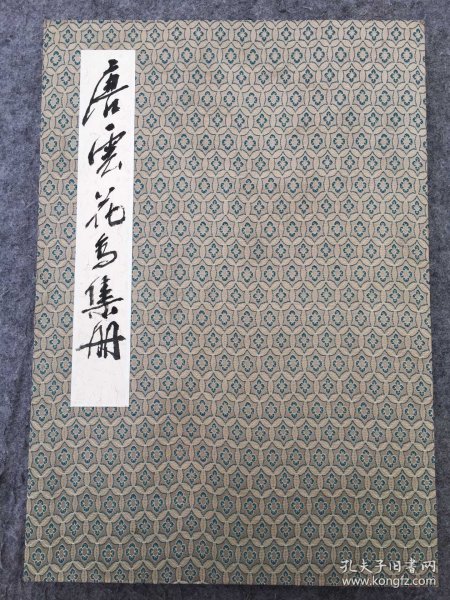 唐雲花鸟集册
孔夫子旧书网
www.kongfz.com